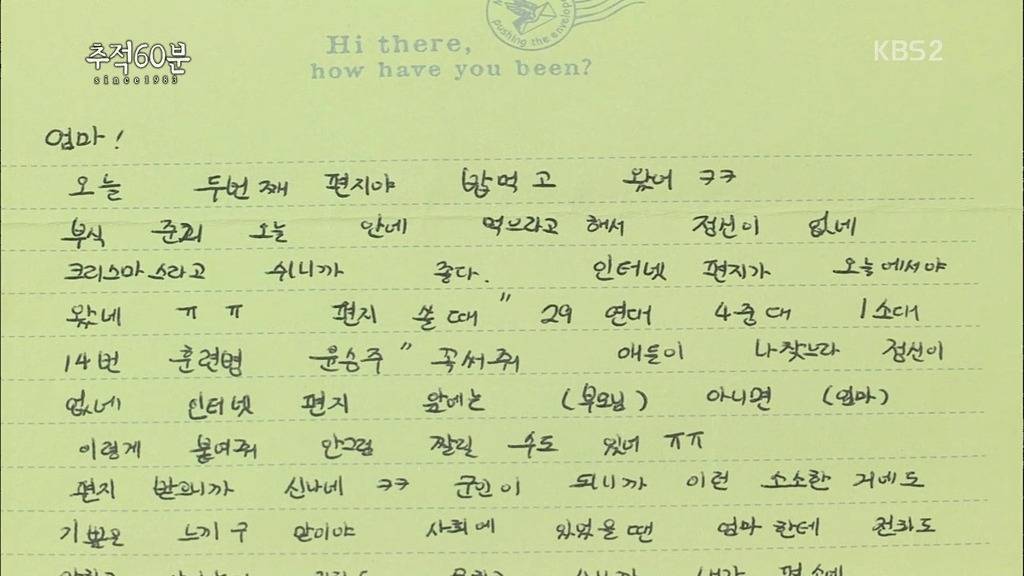 추적60분
since1983
KBS2
pushing the envelope
Hi there,
how have you been?
엄마!
오늘 두번째 편지야 밥먹고 왔네 ㅋㅋ
부식 준괴 오늘 안에 먹으라고 해서 정신이 없네
크리스마스라고 쉬니까 좋다. 인터넷 편지가 오늘에서야
왔네 ㅠㅠ 편지 쓸때 "29 연대 4중대 1소대
14번 훈련병 윤승주" 꼭써줘 애들이 나찾느라 정신이
없네 인터넷 편지 앞에는 (부모님) 아니면 (엄마)
이렇게 붙여줘 안그럼 짤릴 수도 있네 ㅠㅠ
편지 받으니까 신나네 ㅋㅋ 군인이 되니까 이런 소소한 거에도
기쁨은 느끼구 말이야 사회에 있었을땐 엄마한테 전화도